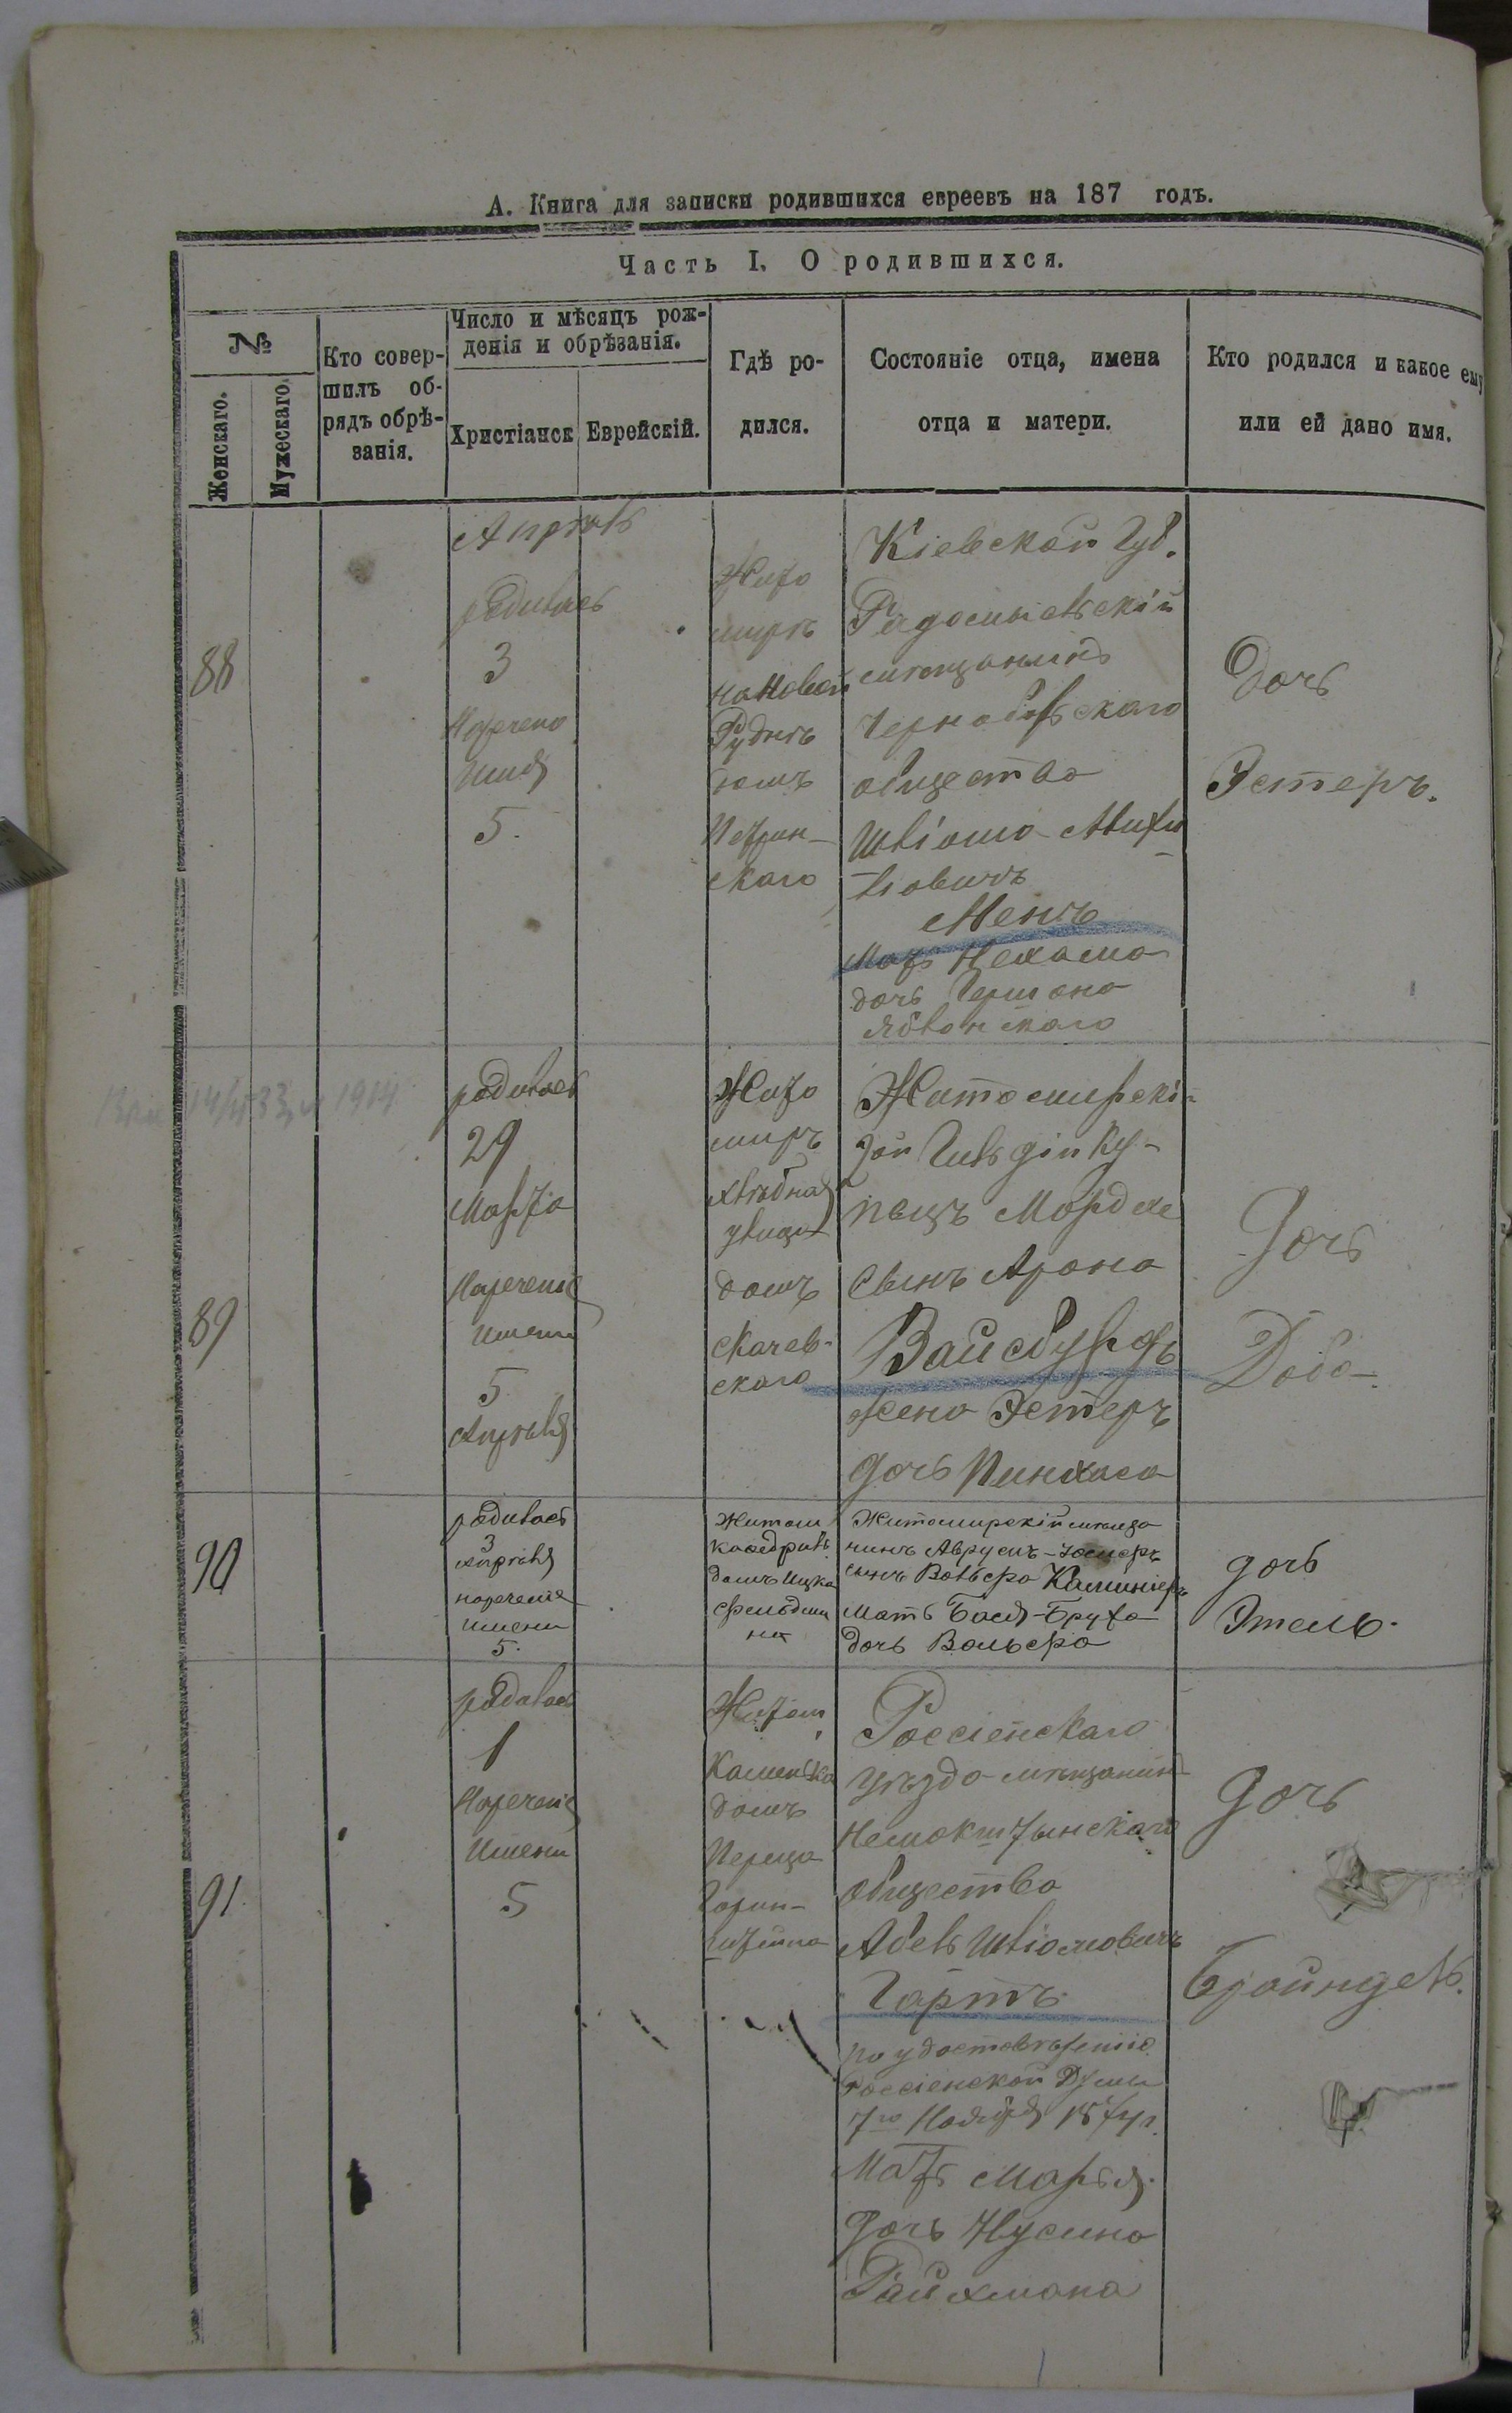 А. Книга для записки родившихся евреевъ на 187 годъ.
Часть I. О родившихся.
№
Женскаго.
Мужескаго.
Кто совер-
шилъ об-
рядъ обрѣ-
занія.
Число и мѣсяцъ рож-
денія и обрѣзанія.
Христіанск
Еврейскій.
Гдѣ ро-
дился.
Состояніе отца, имена
отца и матери.
Кто родился и какое ему
или ей дано имя.
88
Апрѣль
родилась
3
Наречено
Имя
5.
Жито
миръ
на Новой
Руднѣ
домъ
скаго
Кіевской Губ.
Радомысльскій
мѣщанинъ
Чернобыльскаго
общества
Шліома
Менъ
Мать Нехама
дочь Гершона
Дочь
Эстеръ.
89
1914
родилась
29
Марта
Нареченіе
Имени
5
Апрѣля
Жито
миръ
Хлѣбная
улица
домъ
Скачев-
скаго
Житомирскі-
й 2й Гильдіи Ку-
пецъ Мордхе
Сынъ Арона
Вайсбурдъ
Жена Эстеръ
дочь Пинхаса
Дочь
Доба
90
родилась
3
Апрѣля
нареченіе
имени
5.
Житом
каѳедраль.
домъ Ицка
Фельдма
на
Житомирскій мѣща
нинъ Аврумъ-
сынъ Вольфа Каминкеръ
Мать Бася-Бруха
дочь Вольфа
дочь
Этель.
91.
родилась
1
Нареченіе
Имени
5
Житом
Каменка
домъ
Переца
Россіенскаго
уѣзда мѣщанинъ
Немокштынскаго
общества
Абель Шліомовичъ
Гартъ
по удостовѣренію
Россіенской Думы
7го Ноября
Мать Марья
дочь Нусина
Райхмана
Дочь
Бройндель.